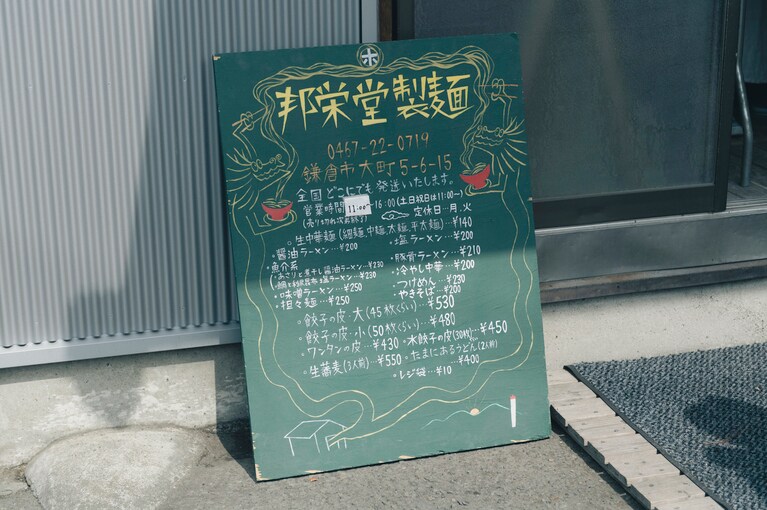 ホ
邦栄堂製麺
0467-22-0719
鎌倉市大町5-6-15
全国どこにでも発送いたします。
営業時間 11:00-16:00(土日祝日は11:00-)
(売り切れ次第終了) 定休日…月,火
。生中華麺(細麺,中麺,太麺,平太麺)…¥140
・醤油ラーメン…¥200
・塩ラーメン…¥200
・魚介系
・あさりと煮干し醤油ラーメン…¥230
塩ラーメン…¥230
・味噌ラーメン…¥250
・担々麺…¥250
・豚骨ラーメン…¥210
・冷やし中華…¥200
・つけめん…¥230
・やきそば…¥200
・餃子の皮・大(45枚くらい)…¥530
・餃子の皮・小(50枚くらい)…¥480
・ワンタンの皮…¥430・水餃子の皮(30枚)…¥450
・生蕎麦(3人前)…¥550・たまにあるうどん(2人前)
…¥400
・レジ袋…¥10